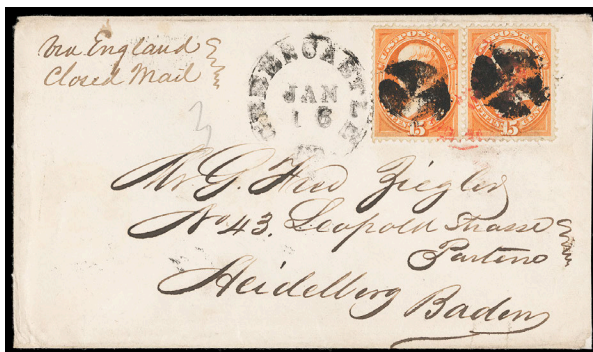 via England
Closed Mail
GREENCASTLE
JAN
16
U.S. POSTAGE
15
U.S. POSTAGE
15
3
Mr G. Fred Ziegler
No 43. Leopold Strasse
Parterre
Heidelberg Baden